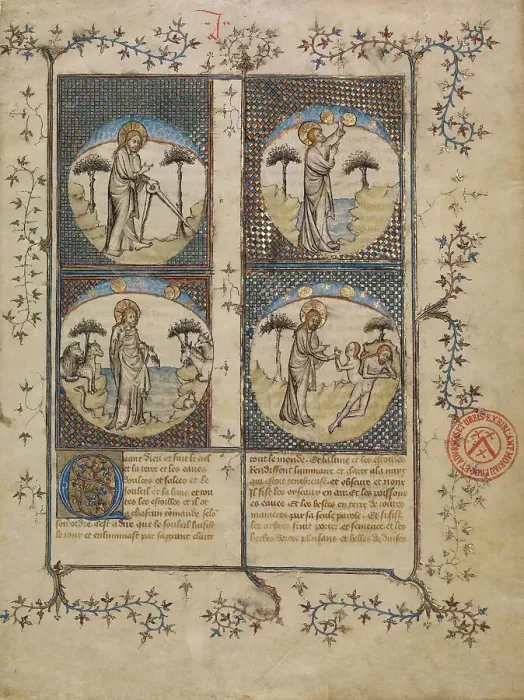 I
Quant dieu et fait le ciel
et la terre et les eaues
doulces et salees et le
souleil et la lune et tou
tes les estoilles et il ot
a chascun comande selo
son ordre cest a dire que le souleil luisist
le iour et enluminast par sa grant clarte
tout le monde. Et la lune et les estoilles
Rendissent lumiere et clarte a la nuyt
qui estoit tenebreuse. et obscure et noire
Il fist les oyseaux en air. Et les poissons
es eaues. Et les bestes en terre de toutes
manieres par sa seule parole. Et si fist
les arbres fruit porter et semence et les
herbes de tres plusours et belles de